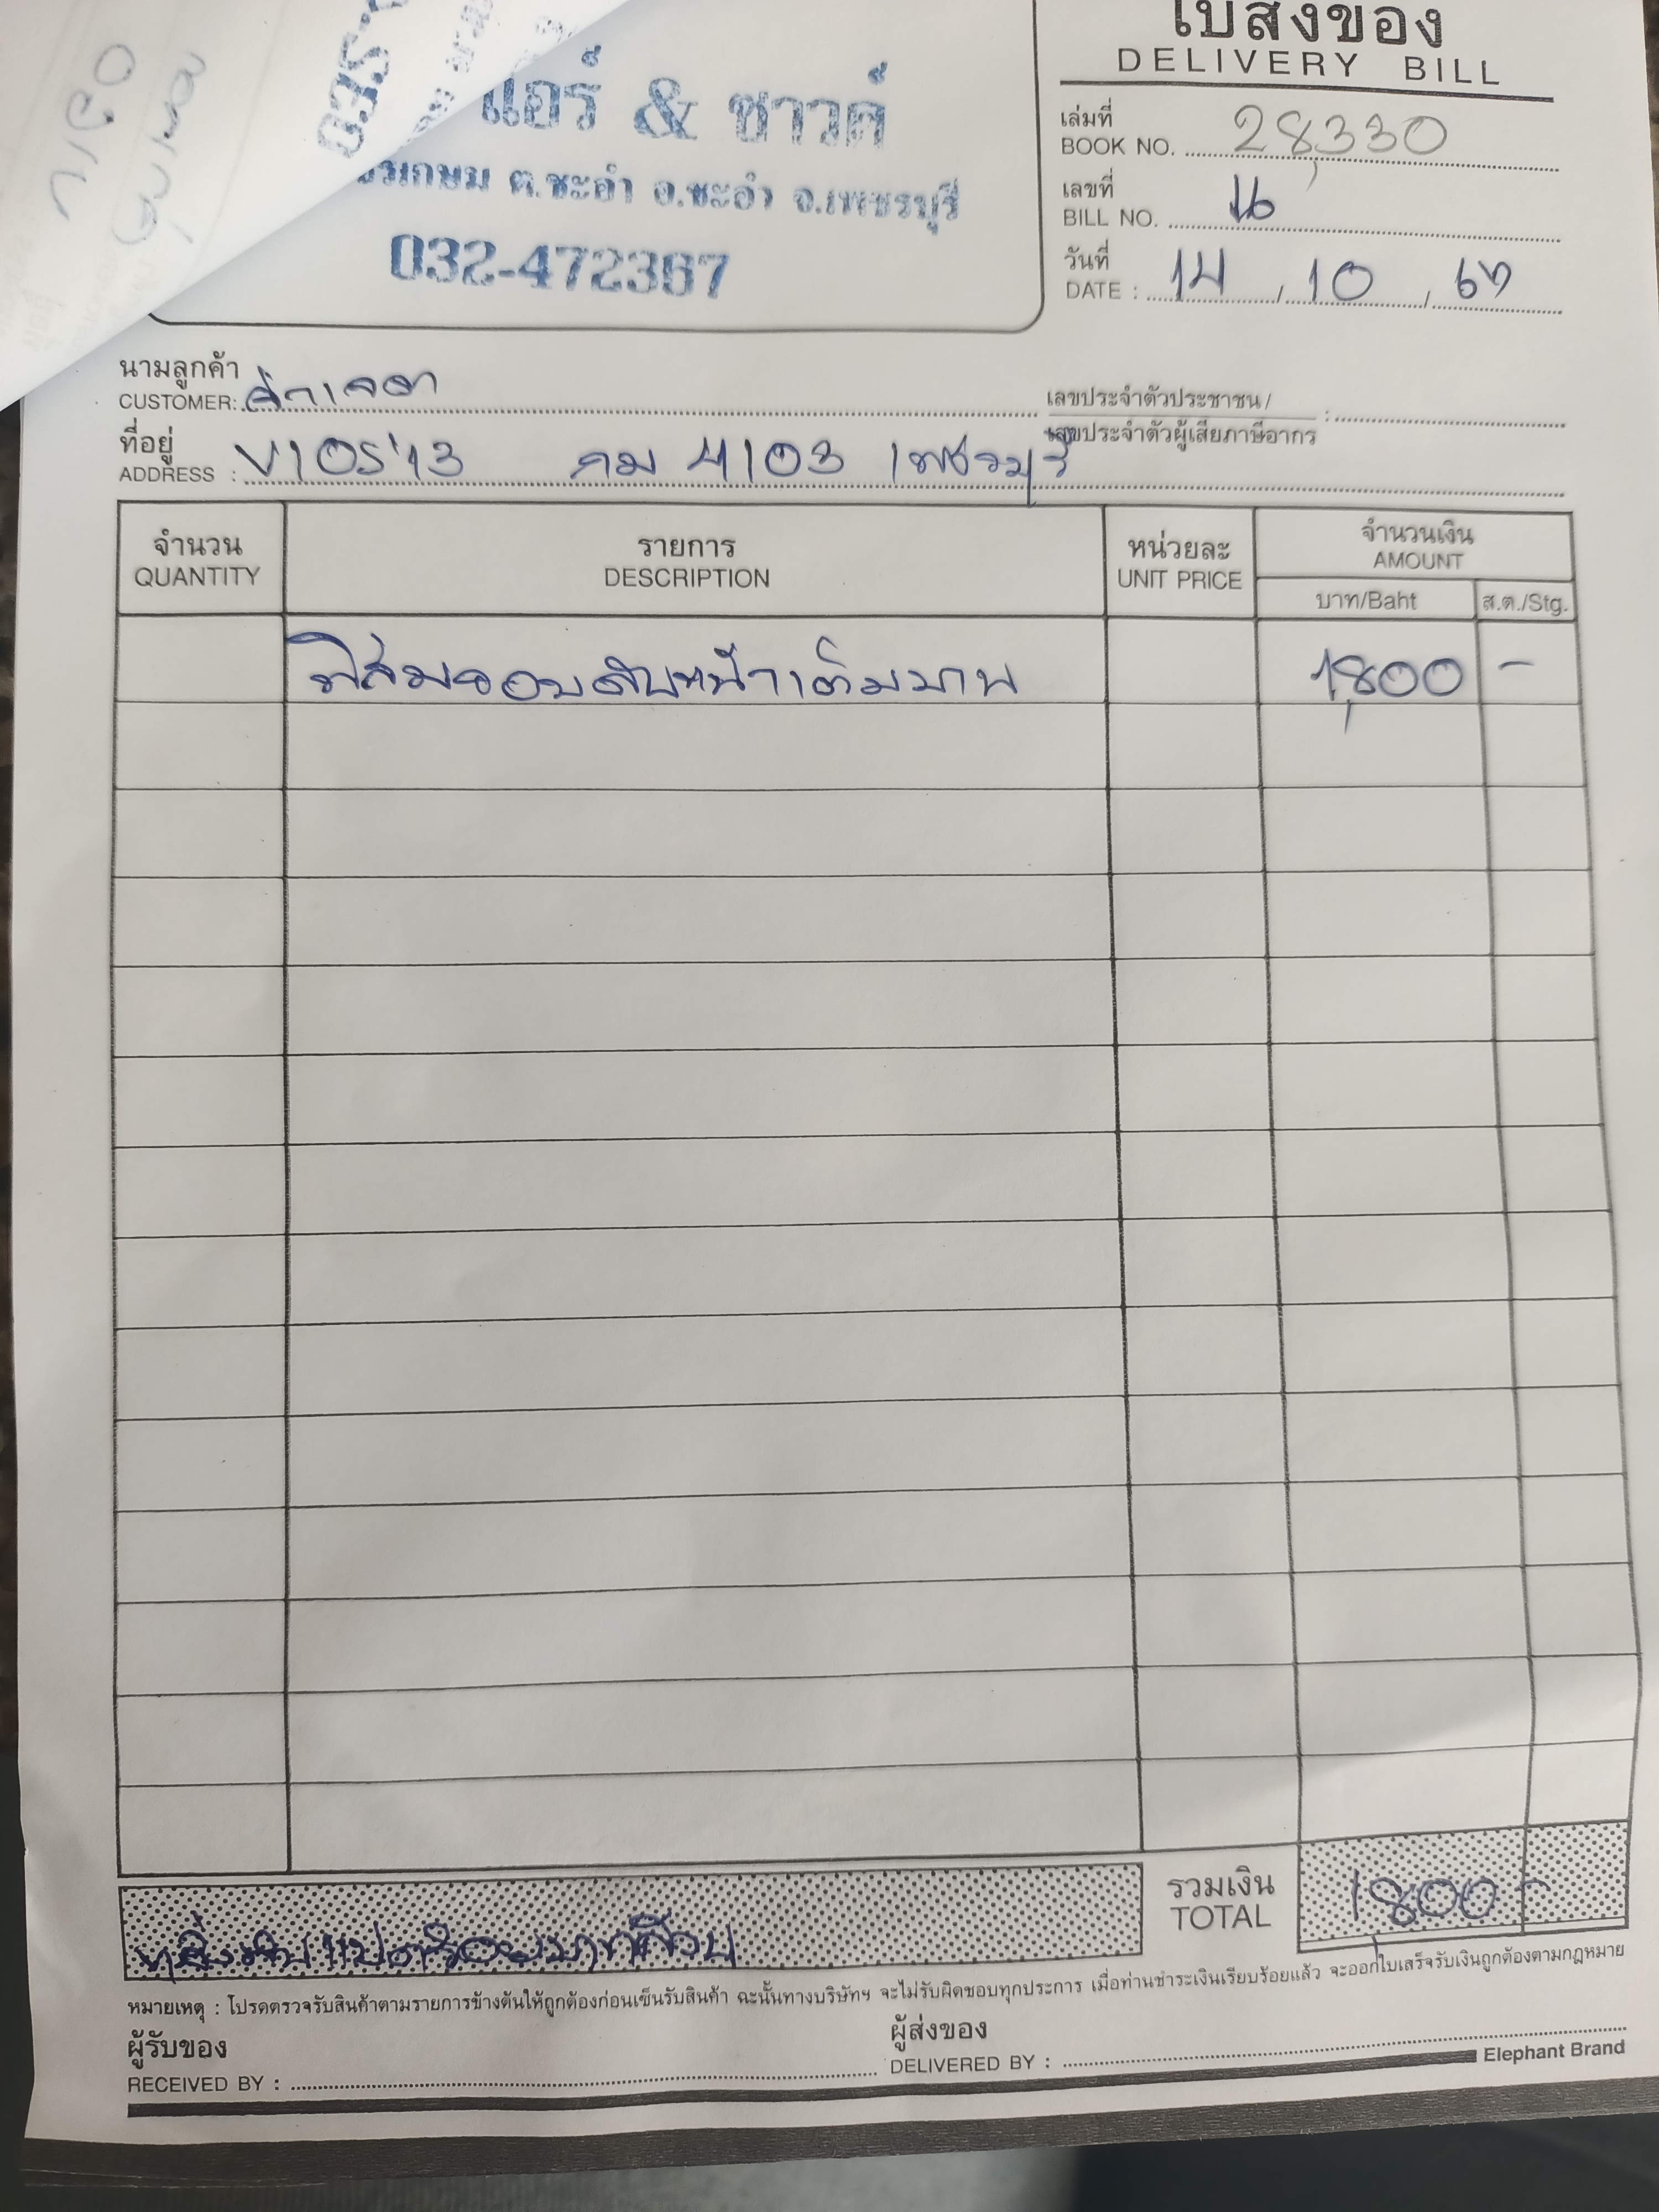 ใบส่งของ
DELIVERY BILL
แอร์ & ซาวด์
ต.ชะอำ อ.ชะอำ จ.เพชรบุรี
032-472367
เล่มที่
BOOK NO. 28,330
เลขที่
BILL NO. 16
วันที่
DATE : 14 / 10 / 67
นามลูกค้า
CUSTOMER:
เลขประจำตัวประชาชน /
เลขประจำตัวผู้เสียภาษีอากร :
ที่อยู่
ADDRESS : VIOS'13 กม 4103 เพชรบุรี
จำนวน
QUANTITY
รายการ
DESCRIPTION
หน่วยละ
UNIT PRICE
จำนวนเงิน
AMOUNT
บาท/Baht
ส.ต./Stg.
ฟิล์มกรองแสงหน้าเต็มบาน 1,800 -
หนึ่งพันแปดร้อยบาทถ้วน
รวมเงิน
TOTAL
1,800 -
หมายเหตุ : โปรดตรวจรับสินค้าตามรายการข้างต้นให้ถูกต้องก่อนเซ็นรับสินค้า ฉะนั้นทางบริษัทฯ จะไม่รับผิดชอบทุกประการ เมื่อท่านชำระเงินเรียบร้อยแล้ว จะออกใบเสร็จรับเงินถูกต้องตามกฎหมาย
ผู้รับของ
RECEIVED BY :
ผู้ส่งของ
DELIVERED BY :
Elephant Brand